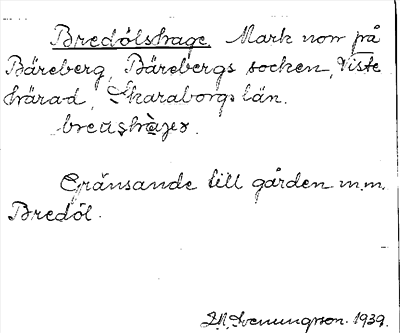 Bredölshage. Mark norr på
Bäreberg, Bärebergs socken, Viste
härad, Skaraborgs län.
Gränsande till gården m.m.
Bredöl.
1939.